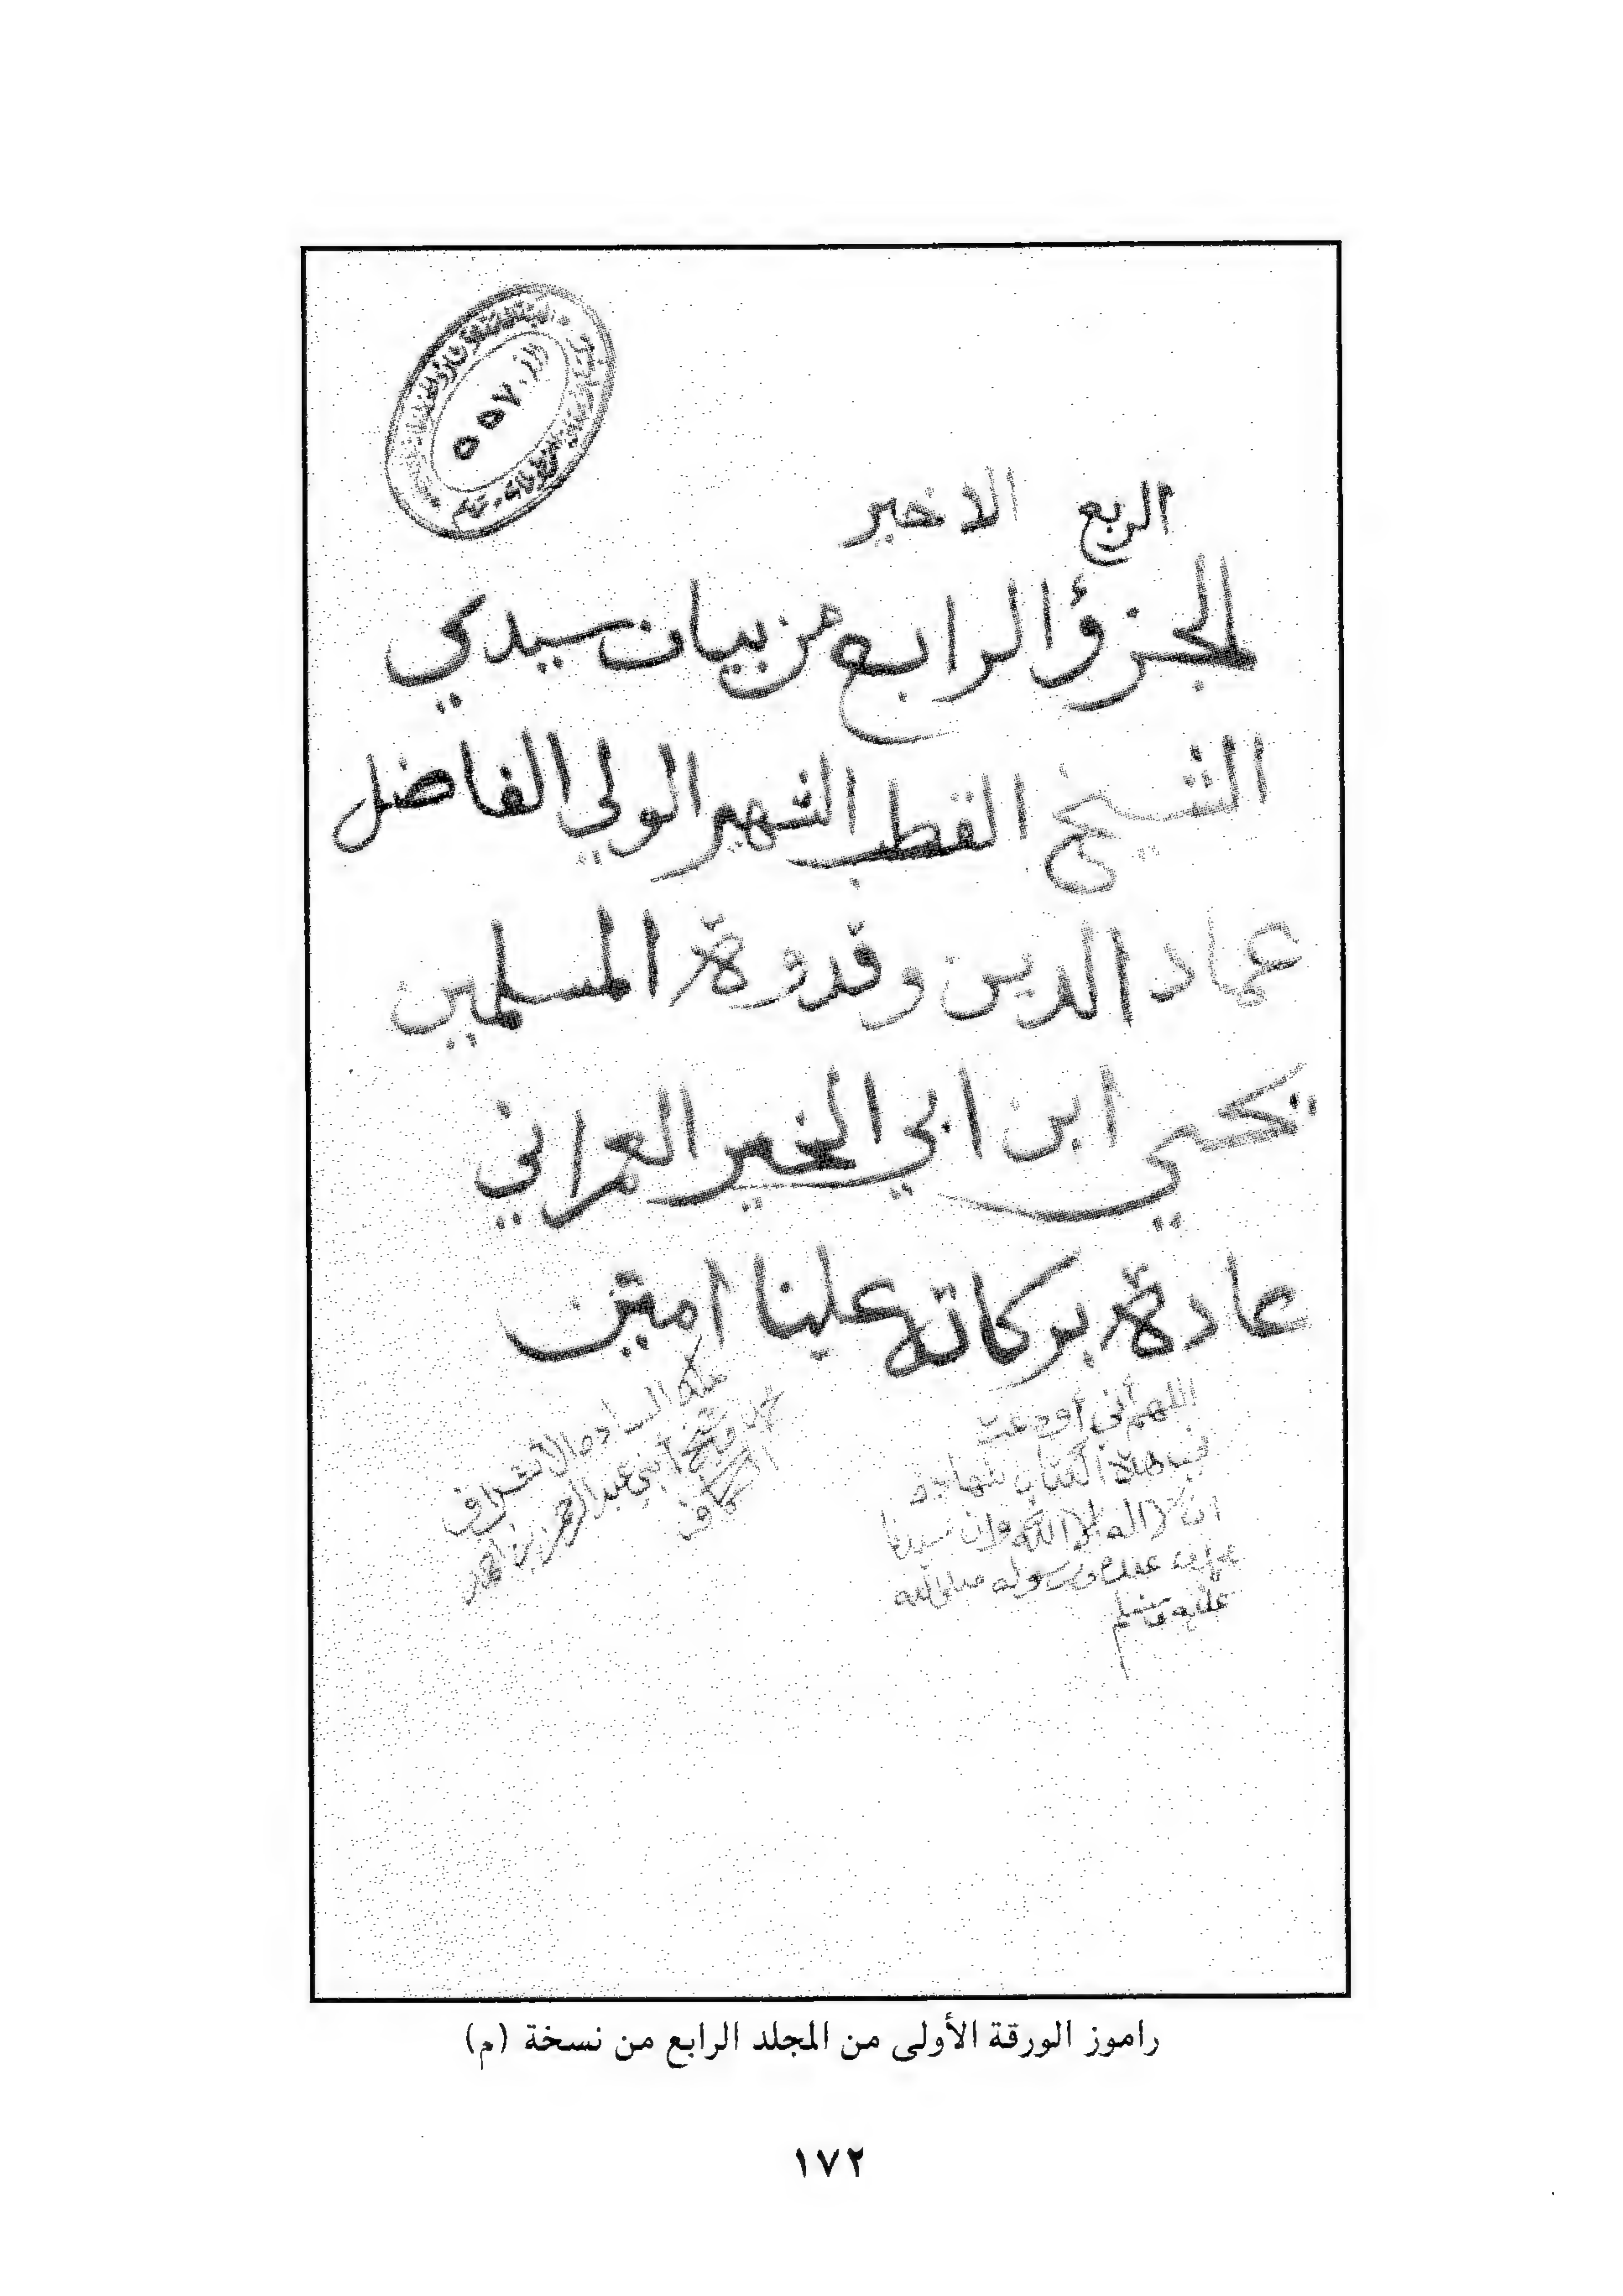 ٥٥٧
الربع الاخير
الجزؤ الرابع من بيان سيدي
الشيخ القطب الشهير الولي الفاضل
عماد الدين وقدوة المسلمين
يحيي ابن ابي الخير العمراني
عادة بركاته علينا امين
اللهم أني أودعت
في هذة الكتاب شهادة
ان لا اله إلا الله وان سيدنا
محمد عبده ورسوله صلى الله
عليه وسلم
ملك السادة الاشراف
شيخ أبني عبد الرحمن بن احمد
الكاف
راموز الورقة الأولى من المجلد الرابع من نسخة (م)
١٧٢